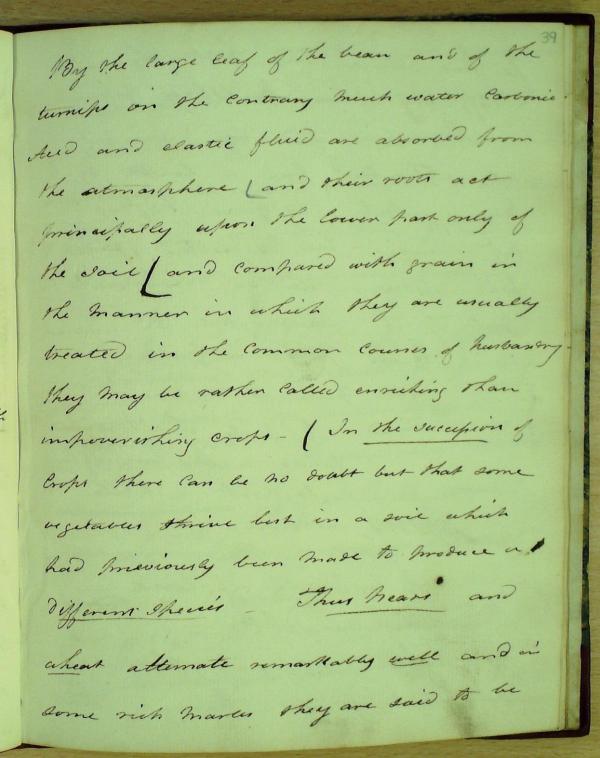 39
By the large leaf of the bean and of the
turnips on the contrary much water Carbonic
Acid and elastic fluid are absorbed from
the atmosphere ( and their roots act
principally upon the lower part only of
the soil ( and compared with grain in
the manner in which they are usually
treated in the common courses of husbandry
they may be rather called enriching than
impoverishing crops - ( In the succession of
Crops there can be no doubt but that some
vegetables thrive best in a soil which
had prieviously been made to produce a
different species - Thus Peas and
wheat alternate remarkably well and in
some rich marles they are said to be